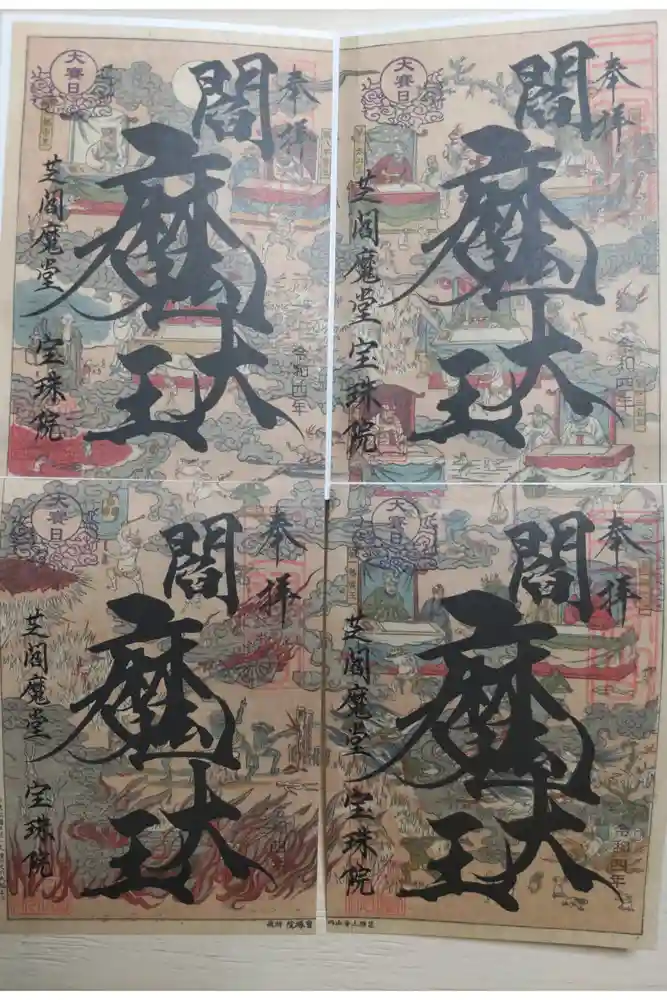 奉拝
閻魔
大王
大賽日
芝閻魔堂 宝珠院
令和四年
奉拝
閻魔
大王
大賽日
芝閻魔堂 宝珠院
令和四年
奉拝
閻魔
大王
大賽日
芝閻魔堂 宝珠院
令和四年
奉拝
閻魔
大王
大賽日
芝閻魔堂 宝珠院
令和四年